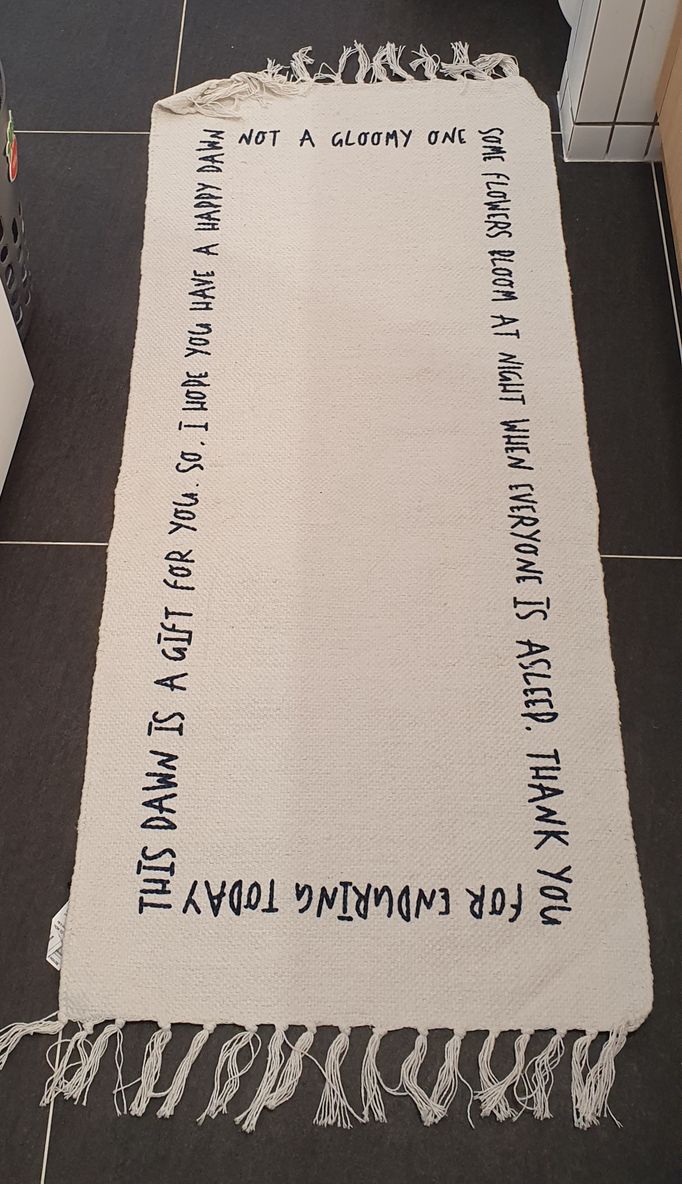 THIS DAWN IS A GIFT FOR YOU. SO, I HOPE YOU HAVE A HAPPY DAWN
NOT A GLOOMY ONE
SOME FLOWERS BLOOM AT NIGHT WHEN EVERYONE IS ASLEEP. THANK YOU
FOR ENDURING TODAY